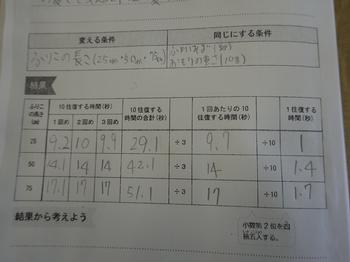 変える条件 同じにする条件
ふりこの長さ(25cm・50cm・75cm) ふれはば(30)
おもりの重さ(10g)
結果
ふりこの長さ(cm) 10往復する時間(秒) 10往復する時間の合計(秒) 1回あたりの10往復する時間(秒) 1往復する時間(秒)
1回め 2回め 3回め
25 9.2 10 9.9 29.1 ÷3 9.7 ÷10 1
50 14.1 14 14 42.1 ÷3 14 ÷10 1.4
75 17.1 17 17 51.1 ÷3 17 ÷10 1.7
結果から考えよう
小数第2位を四
捨五入する。